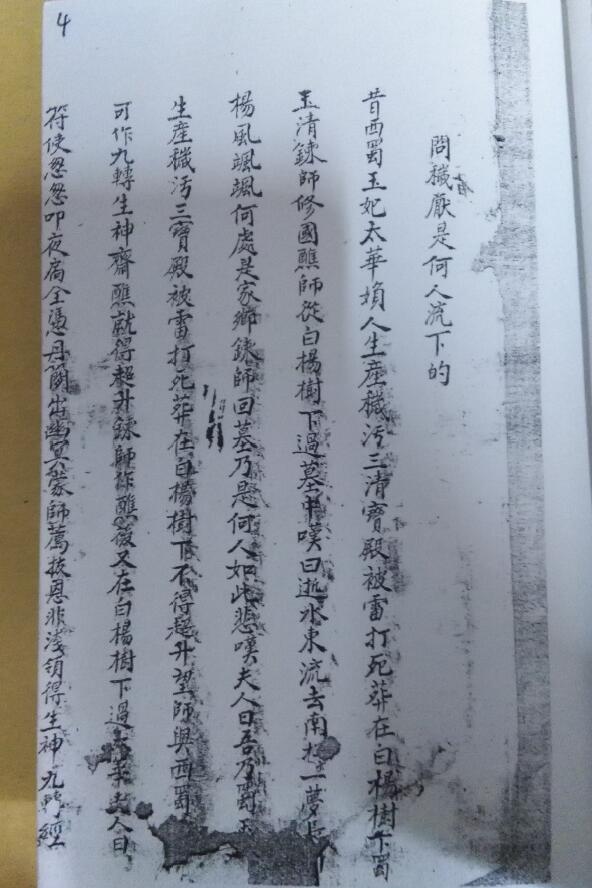 4
問穢厭是何人流下的
昔西蜀玉妃太華夫人生產穢污三清寶殿被雷打死葬在白楊樹下蜀
玉清鍊師修國醮師從白楊樹下過墓中嘆曰逝水東流去南柯一夢長
楊風颯颯何處是家鄉鍊師回墓乃是何人如此悲嘆夫人曰吾乃蜀
生產穢污三寶殿被雷打死葬在白楊樹下不得超升望師與西蜀
可作九轉生神齋醮就得超升鍊師作醮後又在白楊樹下過夫人曰
符使忽忽叩夜扃全憑丹關出幽冥蒙師薦拔恩非淺領得生神九轉經